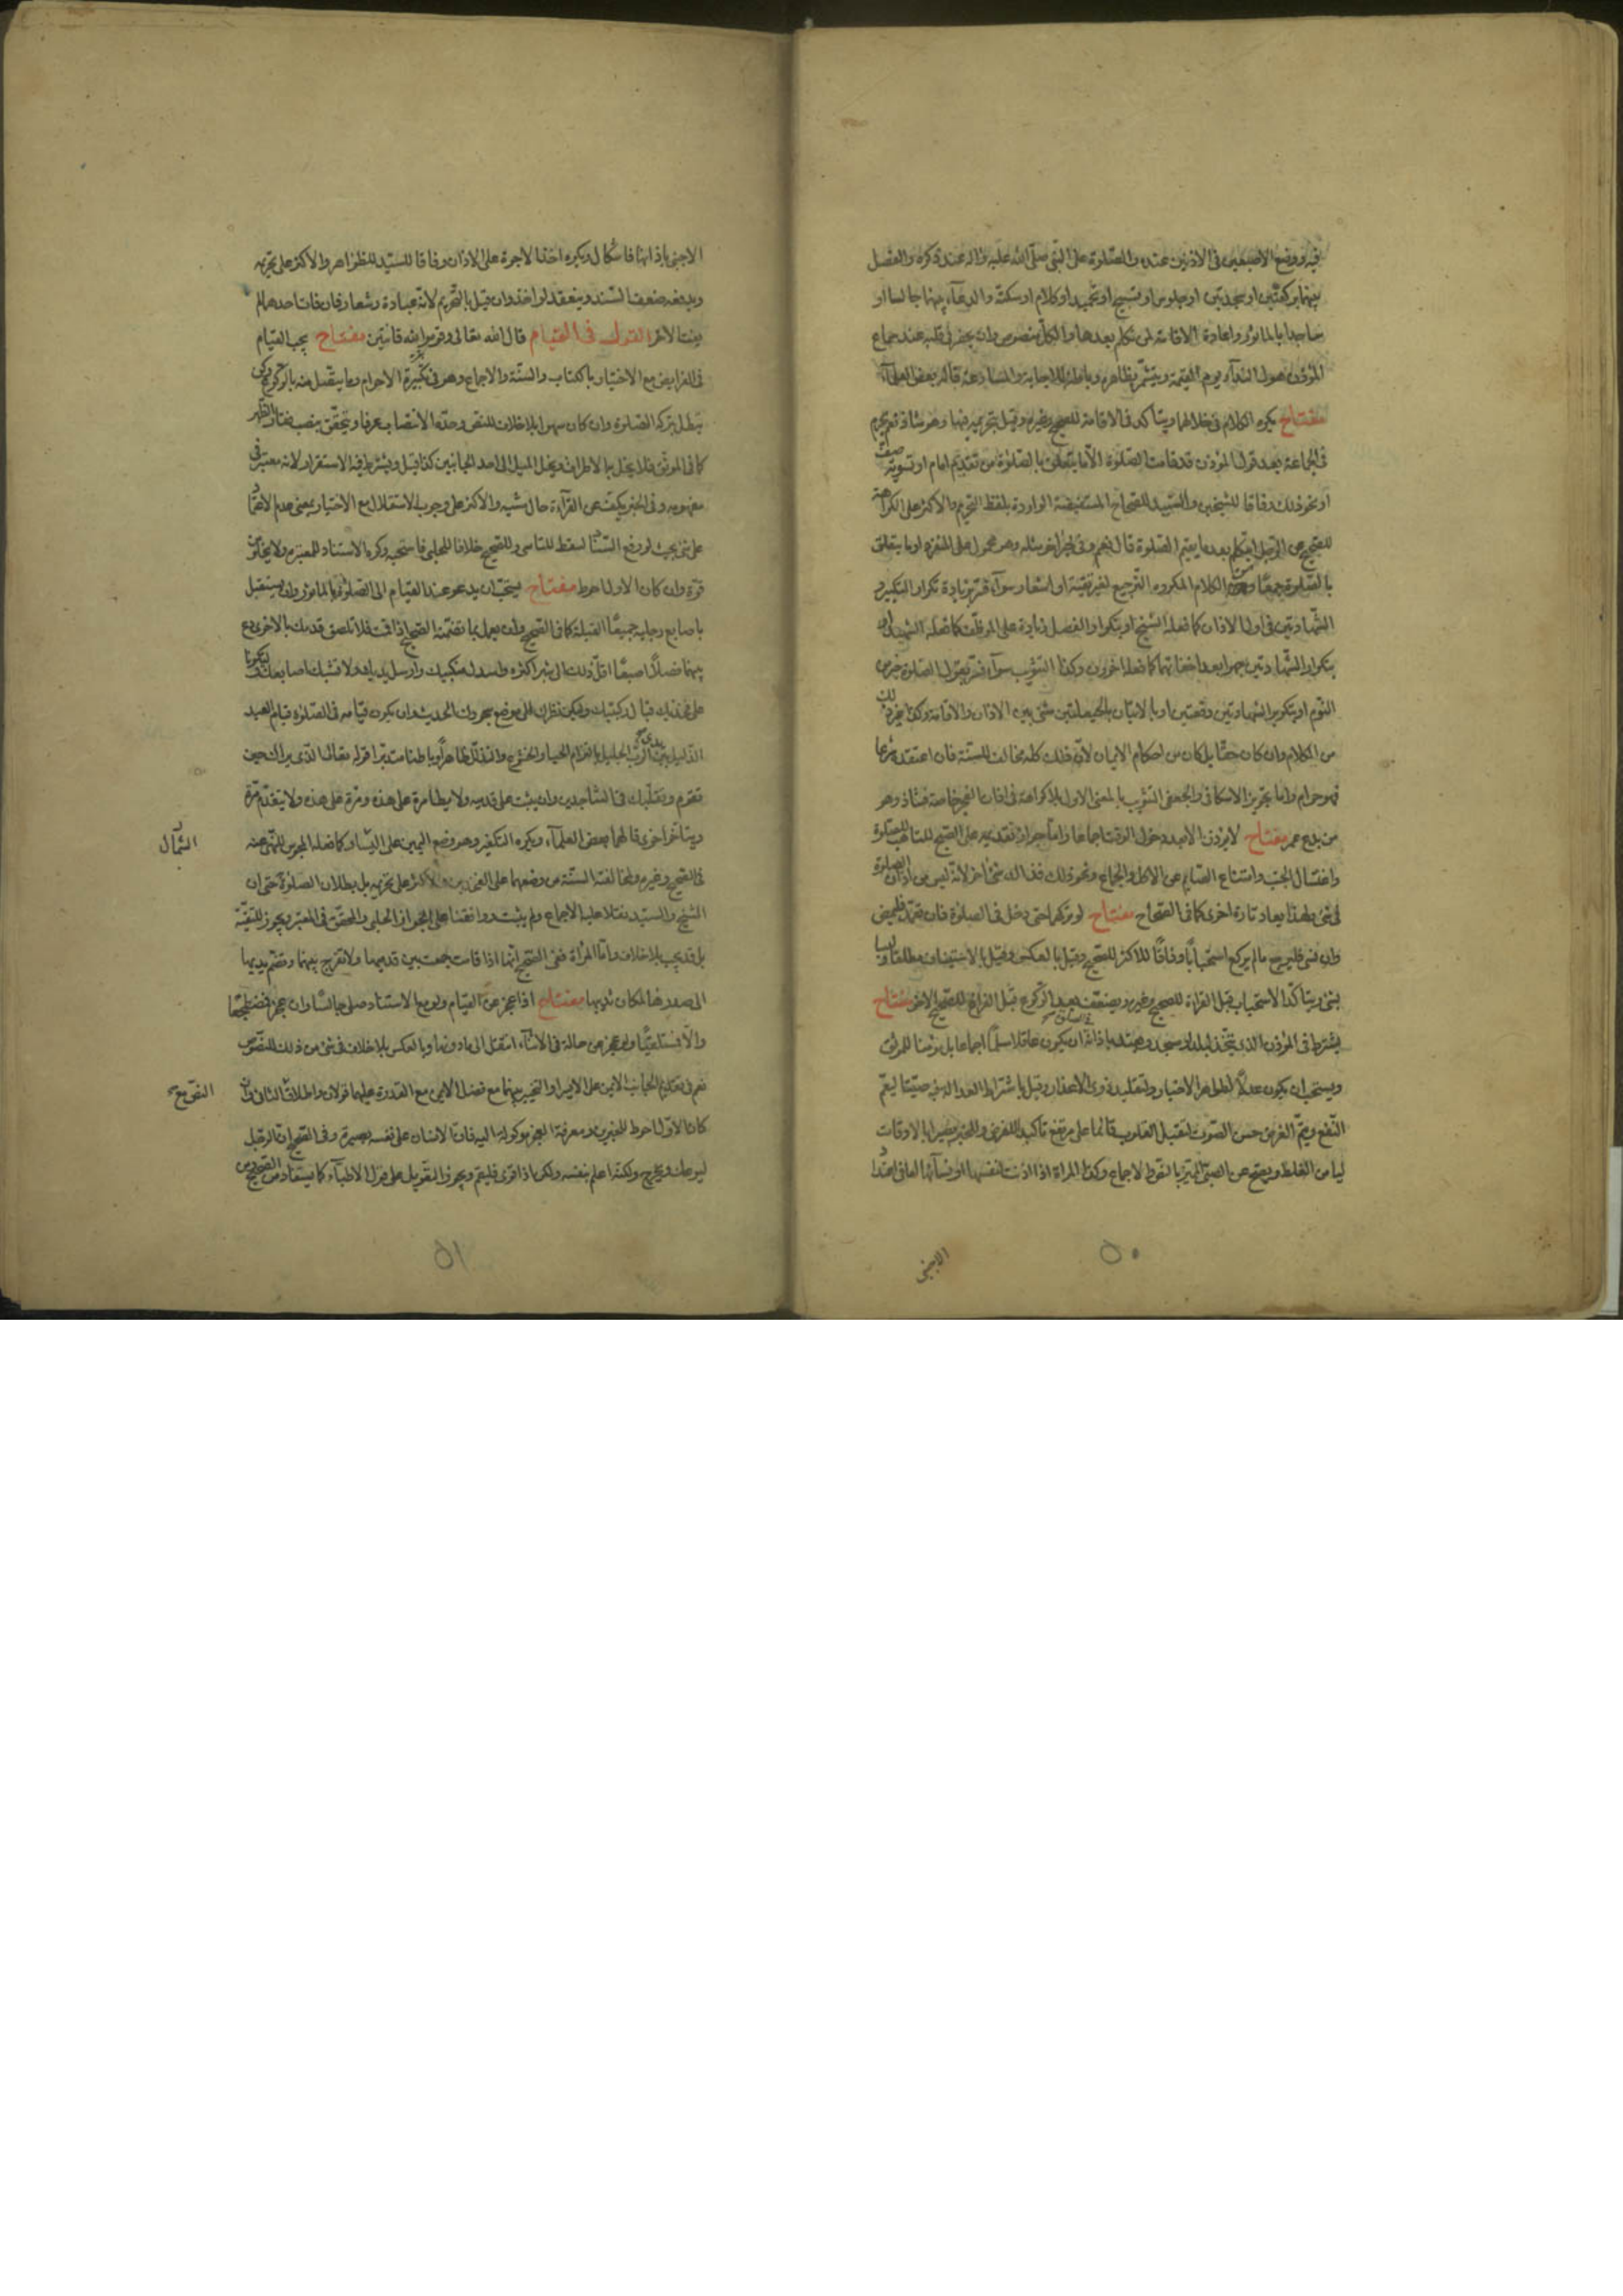 فيه ووضع الاصبعين في الاذنين عنده والصلوة على النبي صلى الله عليه واله عند ذكره والفصل
بينهما بركعتين او سجدتين او جلوس او تسبيح او تحميد او كلام او سكتة والدعاء بينهما جالسا او
ساجدا بالماثور واعادة الاقامة لمن تكلم بعدها والكل منصوص وان يحضر في قلبه عند سماع
المؤذن هول النداء يوم القيمة ويتشمر بظاهره وباطنه للاجابة والمسارعة قاله بعض العلماء
مفتاح يكره الكلام في خلالهما ويتاكد في الاقامة للصحيح وغيره وقيل بتحريمه فيها وهو شاذ نعم يحرم
في الجماعة بعد قول المؤذن قد قامت الصلوة الا ما يتعلق بالصلوة من تقديم امام او تسوية صف
او نحو ذلك وفاقا للشيخين والسيد للصحاح المستفيضة الواردة بلفظ التحريم والاكثر على الكراهة
للصحيح عن الرجل يتكلم بعد ما يقيم الصلوة قال نعم وفي اخر مثله وهو محمول على المنفرد او ما يتعلق
بالصلوة جمعا ومن الكلام المكروه الترجيع لغير تقية او اشعار سواء فسر بزيادة تكرار التكبير و
الشهادتين في اول الاذان كما فعله الشيخ او بتكرار الفصل زيادة على الموظف كما فعله الشهيد او
بتكرار الشهادتين جهرا بعد اخفاتهما كما فعله اخرون وكذا التثويب سواء فسر بقول الصلوة خير من
النوم او بتكرير الشهادتين دفعتين او بالاتيان بالحيعلتين مثنى بين الاذان والاقامة وكذا غير ذلك
من الكلام وان كان حقا بل كان من احكام الايمان لان ذلك كله مخالف للسنة فان اعتقده شرعا
فهو حرام واما تجويز الاسكافي والجعفي التثويب بالمعنى الاول بلا كراهة في اذان الفجر خاصة فشاذ وهو
من بدع عمر مفتاح لا يؤذن الا بعد دخول الوقت اجماعا واما جواز تقديمه على الصبح للتاهب للصلوة
واغتسال الجنب وامتناع الصائم عن الاكل والجماع ونحو ذلك فذاك شئ اخر لانه ليس من اذان الصلوة
في شئ ولهذا يعاد تارة اخرى كما في الصحاح مفتاح لو تركهما حتى دخل في الصلوة فان تعمد فليمض
وان نسي فليرجع ما لم يركع استحبابا وفاقا للاكثر للصحيح وقيل بالعكس وقيل بالاستيناف مطلقا
ويتاكد الاستحباب قبل القراءة للصحيح وغيره ويضعف بعد الركوع قبل الفراغ للصحيح الاخر مفتاح
يشترط في المؤذن الذي يتخذ لبلد او مسجد ويعتد باذانه ان يكون عاقلا مسلما اجماعا بل مؤمنا للموثق
ويستحب ان يكون عدلا لظواهر الاخبار ولتقليد ذوي الاعذار وقيل باشتراط العدالة فيه صيتا ليعم
النفع ويتم الغرض حسن الصوت لتقبل القلوب قائما على مرتفع تاكيدا للغرض وللخبر بصيرا بالاوقات
ليامن الغلط ويصح من الصبي المميز بالنصوص والاجماع وكذا المراة اذا اذنت لنفسها او نسائها اما في اعتداد
الاجنبي
٥٠
الاجنبي باذانها فاشكال ويكره اخذ الاجرة على الاذان وفاقا للسيد للظواهر والاكثر على تحريمه
ويدفعه ضعف السند وينعقد لو اخذ وان قيل بالتحريم لانه عبادة وشعار فان فات احدهما لم
يفت الاخر القول في القيام قال الله تعالى وقوموا لله قانتين مفتاح يجب القيام
في الفرايض مع الاختيار بالكتاب والسنة والاجماع وهو في تكبيرة الاحرام وما يتصل منه بالركوع ركن
تبطل بتركه الصلوة وان كان سهوا بلا خلاف للنص وحده الانتصاب عرفا ويتحقق بنصب فقار الظهر
كما في الموثق فلا يخل به الاطراق ويخل الميل الى احد الجانبين كذا قيل ويشترط فيه الاستقرار لانه معتبر في
مفهومه وفي الخبر يكف عن القراءة حال مشيه والاكثر على وجوب الاستقلال مع الاختيار بمعنى عدم الاعتماد
على شئ بحيث لو رفع السناد لسقط للتاسي وللصحيح خلافا للحلبي فاستحبه وكره الاستناد للمعتبرة ولا يخلو من
قوة وان كان الاول احوط مفتاح يستحب ان يدعو عند القيام الى الصلوة بالماثور وان يستقبل
باصابع رجليه جميعا القبلة كما في الصحيح وان يعمل بما تضمنه الصحيح اذا قمت فلا تلصق قدمك بالاخرى دع
بينهما فصلا اصبعا اقل ذلك الى شبر اكثره واسدل منكبيك وارسل يديك ولا تشبك اصابعك وليكونا
على فخذيك قبال ركبتيك وليكن نظرك الى موضع سجودك الحديث وان يكون قيامه في الصلوة قيام العبد
الذليل بين يدي الرب الجليل بالتزام الحياء والخشوع والتذلل ظاهرا وباطنا متدبرا قوله تعالى الذي يراك حين
تقوم وتقلبك في الساجدين وان يثبت على قدميه ولا يطا مرة على هذه ومرة على هذه ولا يتقدم مرة
ويتاخر اخرى قالهما بعض العلماء ويكره التكفير وهو وضع اليمين على اليسار كما فعله المجوس للنهي عنه
الشمال
في الصحيح وغيره ولمخالفته السنة من وضعهما على الفخذين والاكثر على تحريمه بل بطلان الصلوة حتى ان
الشيخ والسيد نقلا عليه الاجماع ولم يثبت ووافقنا على الجواز الحلبي والمحقق في المعتبر ويجوز للتقية
بل قد يجب بلا خلاف واما المراة ففي الصحيح انها اذا قامت جمعت بين قدميها ولا تفرج بينهما وتضم يديها
الى صدرها لمكان ثدييها مفتاح اذا عجز عن القيام ولو مع الاستناد صلى جالسا وان عجز فمضطجعا
والا فمستلقيا ولو عجز عن حالة في الاثناء انتقل الى ما دونها وبالعكس بلا خلاف في شئ من ذلك للنصوص
نعم في تقديم الجانب الايمن على الايسر او التخيير بينهما مع فضل الايمن مع القدرة عليهما قولان واطلاق الثاني وان
كان الاول احوط للخبرين ومعرفة العجز موكولة اليه فان الانسان على نفسه بصيرة وفي الصحيح ان الرجل
ليوعك ويحرج ولكنه اعلم بنفسه ولكن اذا قوى فليقم ويجوز التعويل على قول الاطباء كما يستفاد من الصحيح
٥١